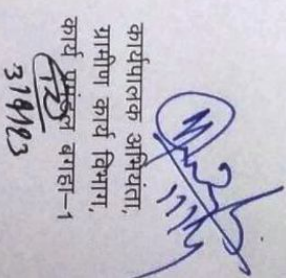 कार्यपालक अभियंता,
ग्रामीण कार्य विभाग,
कार्य प्रमंडल बगहा-1
3/9/23